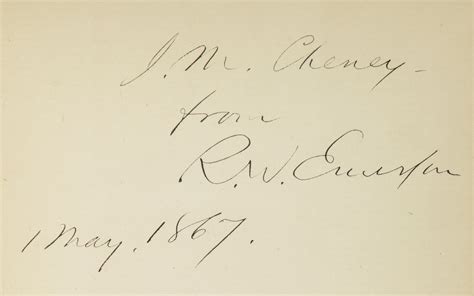 J. M. Cheney -
from
R. W. Emerson
1 May, 1867.